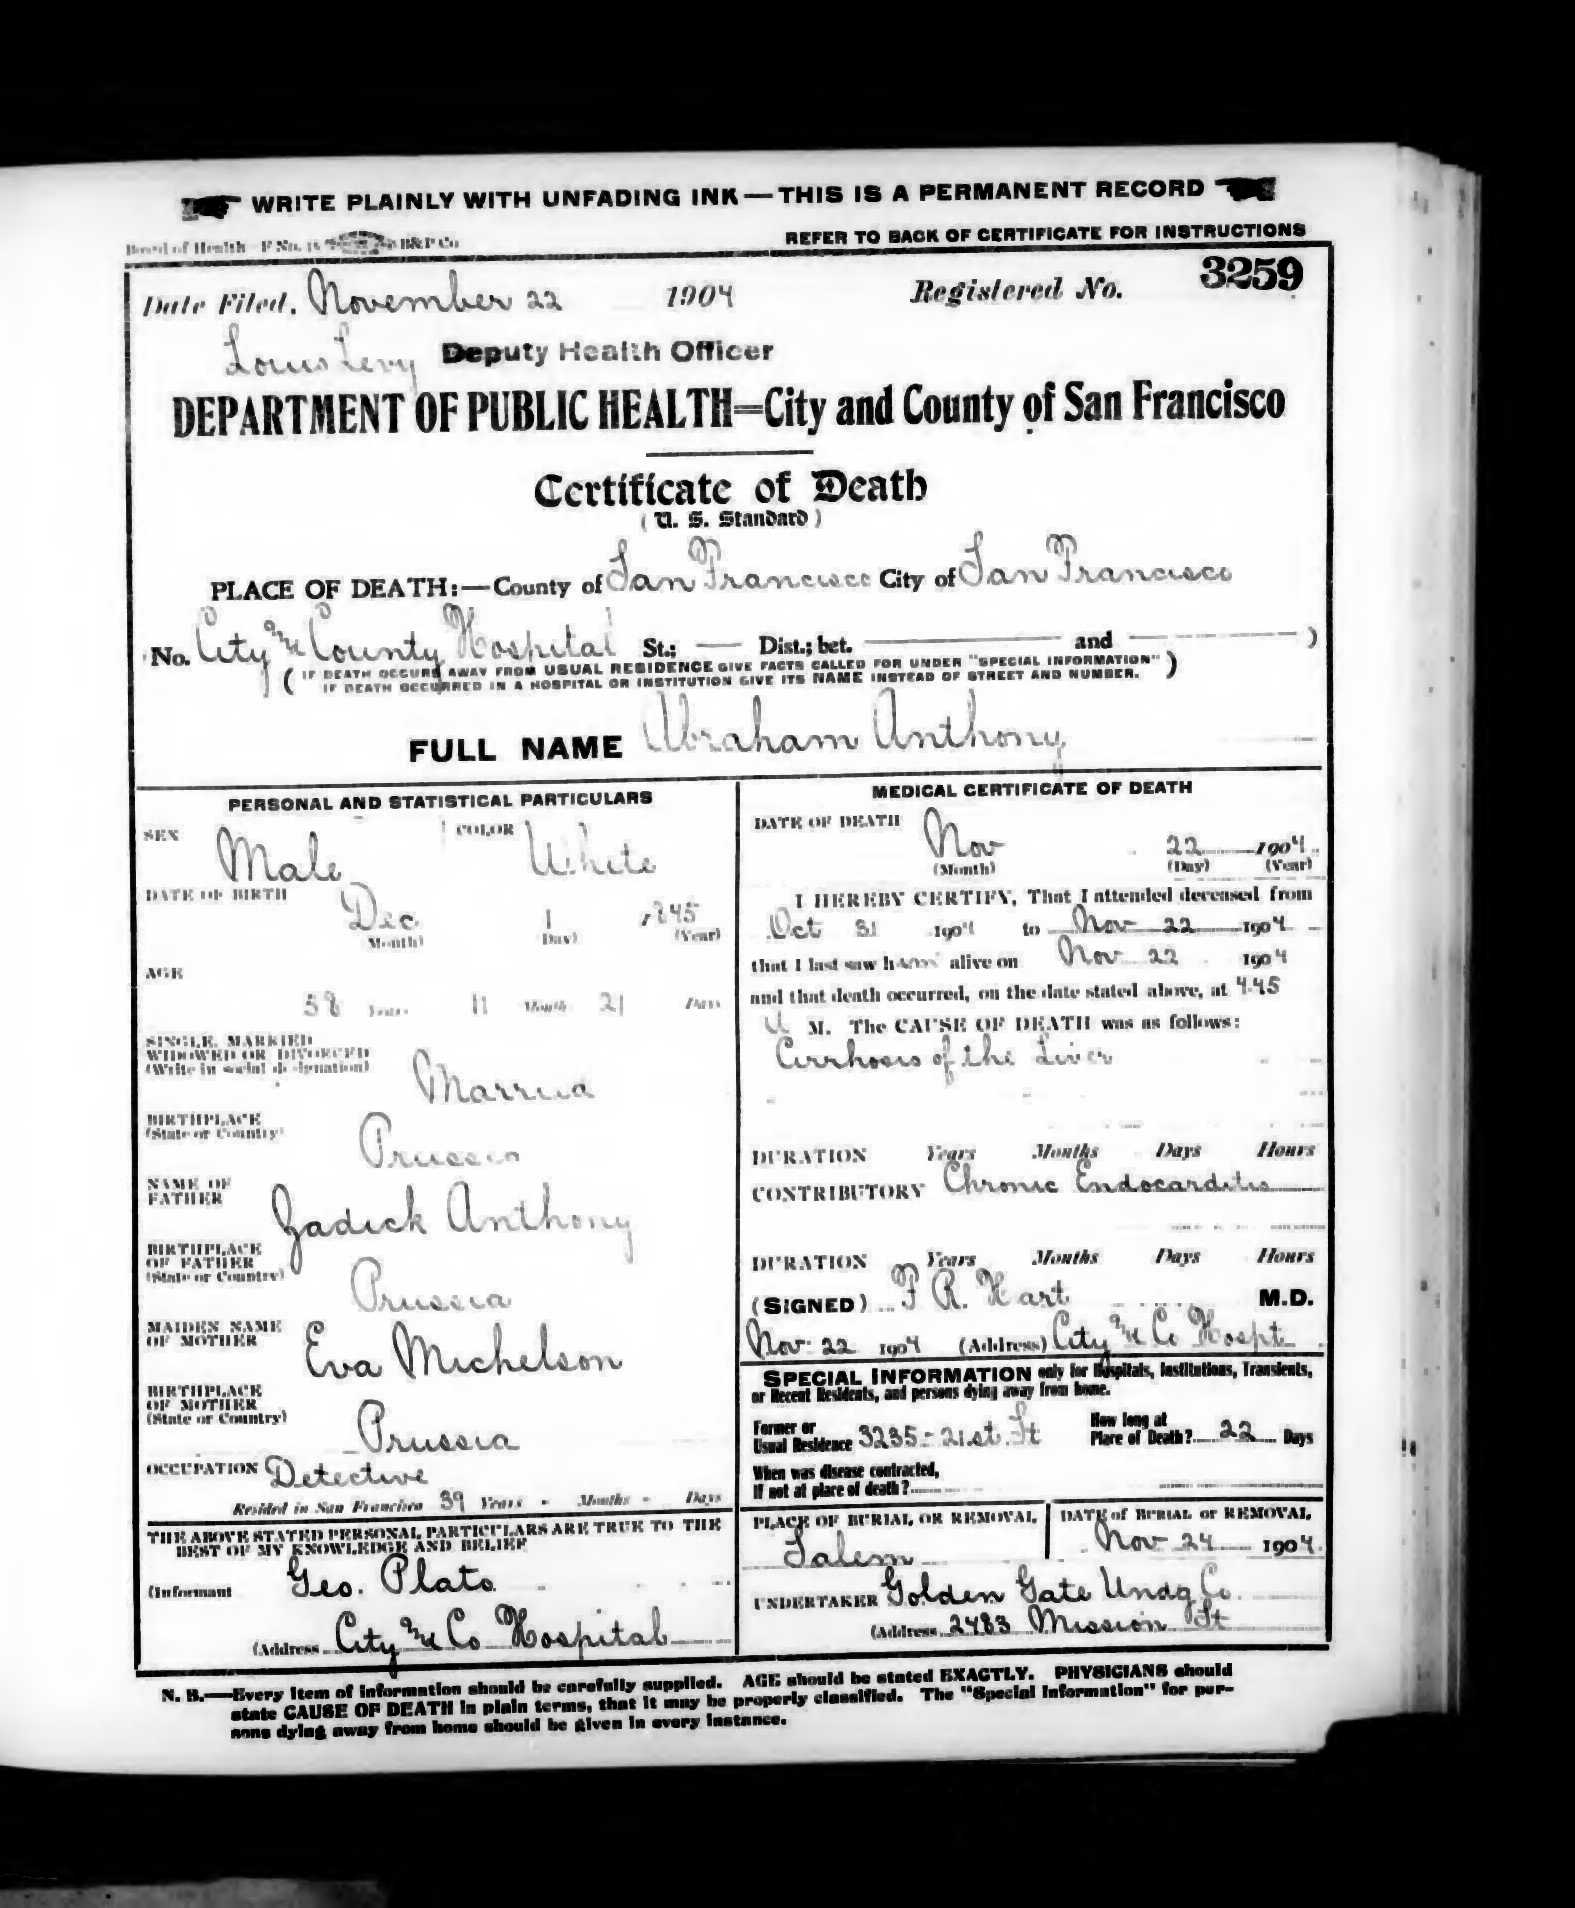 WRITE PLAINLY WITH UNFADING INK—THIS IS A PERMANENT RECORD
Board of Health—F No. 15 B&P Co
REFER TO BACK OF CERTIFICATE FOR INSTRUCTIONS
Date Filed, November 22 1904 Registered No. 3259
Louis Levy Deputy Health Officer
DEPARTMENT OF PUBLIC HEALTH=City and County of San Francisco
Certificate of Death
(U. S. Standard)
PLACE OF DEATH:—County of San Francisco City of San Francisco
No. City and County Hospital St.; — Dist.; bet. — and — )
( IF DEATH OCCURS AWAY FROM USUAL RESIDENCE GIVE FACTS CALLED FOR UNDER "SPECIAL INFORMATION" )
IF DEATH OCCURRED IN A HOSPITAL OR INSTITUTION GIVE ITS NAME INSTEAD OF STREET AND NUMBER.
FULL NAME Abraham Anthony
PERSONAL AND STATISTICAL PARTICULARS
SEX Male COLOR White
DATE OF BIRTH Dec 1 1845
(Month) (Day) (Year)
AGE
58 Years 11 Months 21 Days
SINGLE, MARRIED
WIDOWED OR DIVORCED
(Write in social designation) Married
BIRTHPLACE
(State or Country) Prussia
NAME OF
FATHER Jadick Anthony
BIRTHPLACE
OF FATHER
(State or Country) Prussia
MAIDEN NAME
OF MOTHER Eva Michelson
BIRTHPLACE
OF MOTHER
(State or Country) Prussia
OCCUPATION Detective
Resided in San Francisco 39 Years - Months - Days
THE ABOVE STATED PERSONAL PARTICULARS ARE TRUE TO THE
BEST OF MY KNOWLEDGE AND BELIEF
(Informant Geo. Plato
(Address City and Co Hospital
MEDICAL CERTIFICATE OF DEATH
DATE OF DEATH Nov 22 1904
(Month) (Day) (Year)
I HEREBY CERTIFY, That I attended deceased from
Oct 31 1904 to Nov 22 1904
that I last saw him alive on Nov 22 1904
and that death occurred, on the date stated above, at 4.45
M. The CAUSE OF DEATH was as follows:
Cirrhosis of the Liver
DURATION Years Months Days Hours
CONTRIBUTORY Chronic Endocarditis
DURATION Years Months Days Hours
(SIGNED) F R. Hart M.D.
Nov 22 1904 (Address) City and Co Hospt
SPECIAL INFORMATION only for Hospitals, Institutions, Transients,
or Recent Residents, and persons dying away from home.
Former or
Usual Residence 3235 - 21st St
How long at
Place of Death? 22 Days
When was disease contracted,
If not at place of death?
PLACE OF BURIAL OR REMOVAL
Salem
DATE of BURIAL or REMOVAL
Nov 24 1904
UNDERTAKER Golden Gate Undg Co
(Address 2483 Mission St
N. B.—Every item of information should be carefully supplied. AGE should be stated EXACTLY. PHYSICIANS should
state CAUSE OF DEATH in plain terms, that it may be properly classified. The "Special Information" for per-
sons dying away from home should be given in every instance.